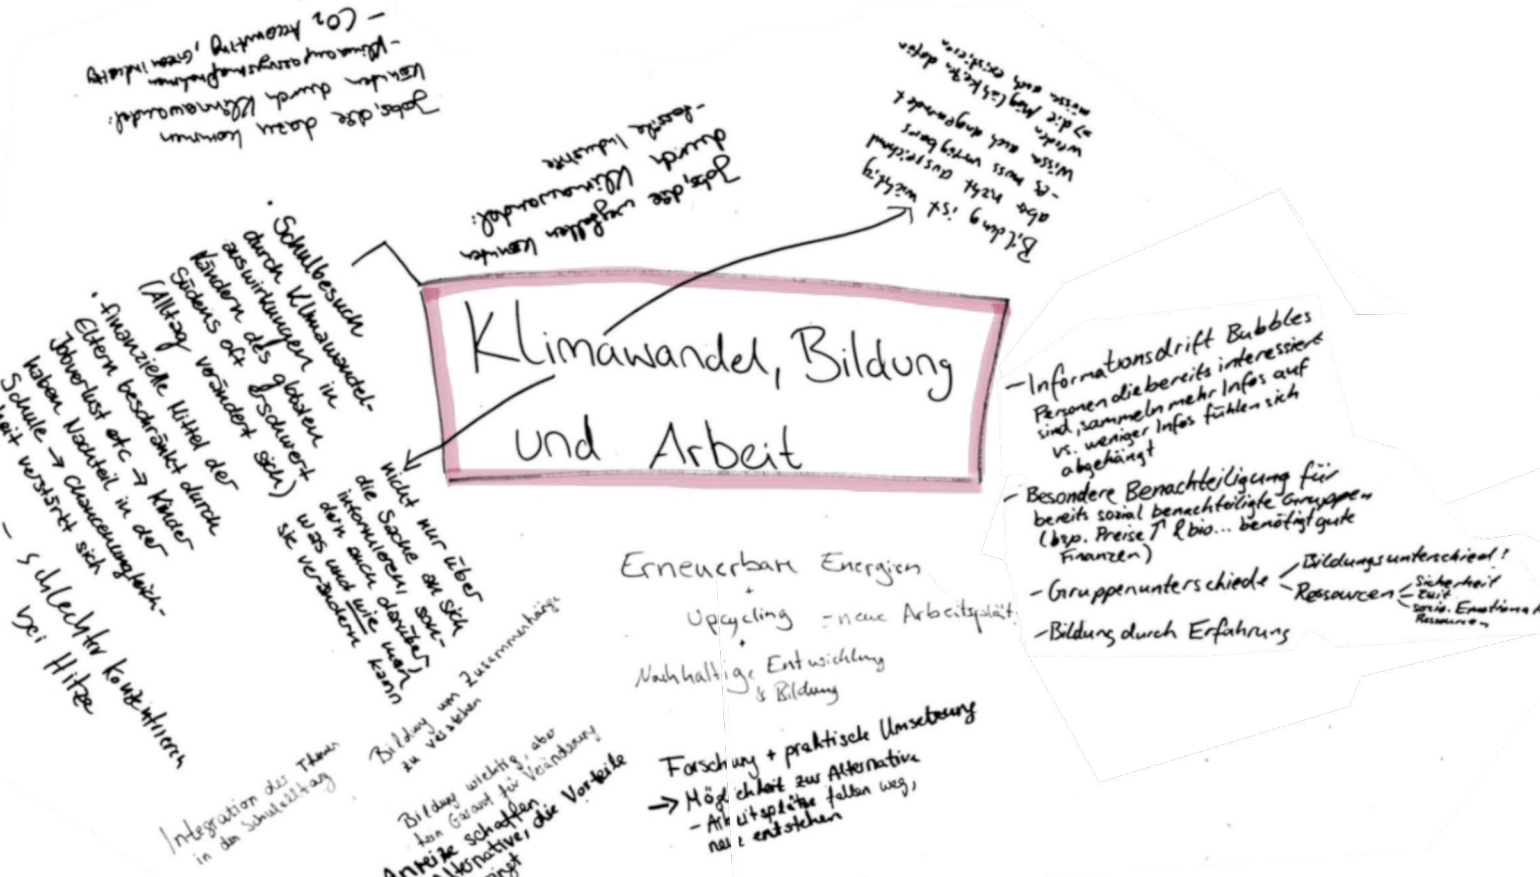 Klimawandel, Bildung
und Arbeit
Jobs, die dazu kommen
könnten durch Klimawandel:
- Klimaanpassungsmaßnahmen
- CO₂ Accounting, Green Industry
Jobs, die wegfallen könnten
durch Klimawandel:
- fossile Industrie
Bildung ist wichtig
aber nicht ausreichend
- es muss
Wissen auch angewendet
werden
=> die Möglichkeiten dafür
müssen auch existieren
• Schulbesuch
durch Klimawandel-
auswirkungen in
Ländern des globalen
Südens oft erschwert
(Alltag verändert sich)
• finanzielle Mittel der
Eltern beschränkt durch
Jobverlust etc → Kinder
haben Nachteil in der
Schule → Chancenungleich-
heit verstärkt sich
- schlechter konzentrieren
bei Hitze
nicht nur über
die Sache an sich
informieren, son-
dern auch darüber,
was und wie man
sie verändern kann
- Informationsdrift Bubbles
Personen die bereits interessiert
sind, sammeln mehr Infos auf
vs. weniger Infos fühlen sich
abgehängt
- Besondere Benachteiligung für
bereits sozial benachteiligte Gruppen
(bsp. Preise ↑ & bio... benötigt gute
Finanzen)
- Gruppenunterschiede
Bildungsunterschied!
Ressourcen
Sicherheit
Zeit
Ressourcen
- Bildung durch Erfahrung
Erneuerbare Energien
+
Upcycling - neue Arbeitsplät
+
Nachhaltige Entwicklung
& Bildung
Forschung + praktische Umsetzung
→ Möglichkeit zur Alternative
- Arbeitsplätze fallen weg,
neue entstehen
Bildung um Zusammenhänge
zu verstehen
Integration des Themas
in den Schulalltag
Bildung wichtig, aber
kein Garant für Veränderung
Anreize schaffen
Alternative, die Vorteile